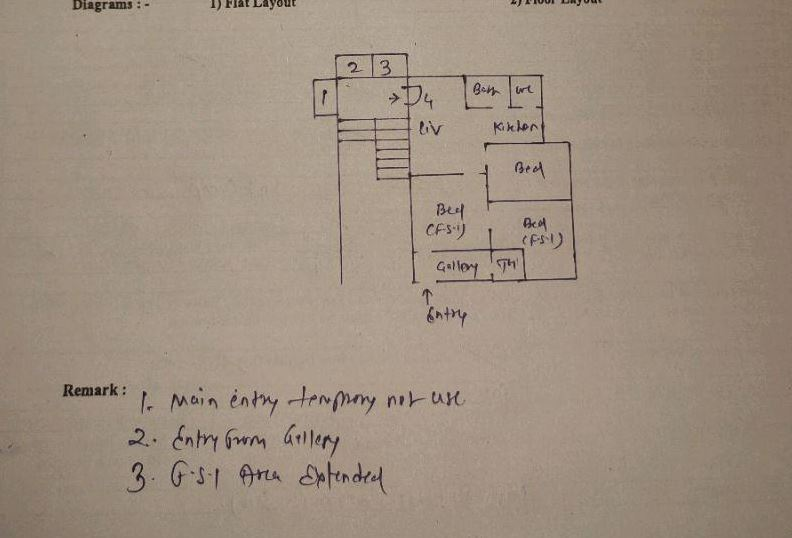 Diagrams : - 1) Flat Layout 2) Floor Layout
2 3
1 4
Bath WC
Liv Kitchen
Bed
Bed
(F.S.I) Bed
(F.S.I)
Gallery
Entry
Remark :
1. Main entry temprory not use
2. Entry from Gallery
3. F.S.I Area Extended